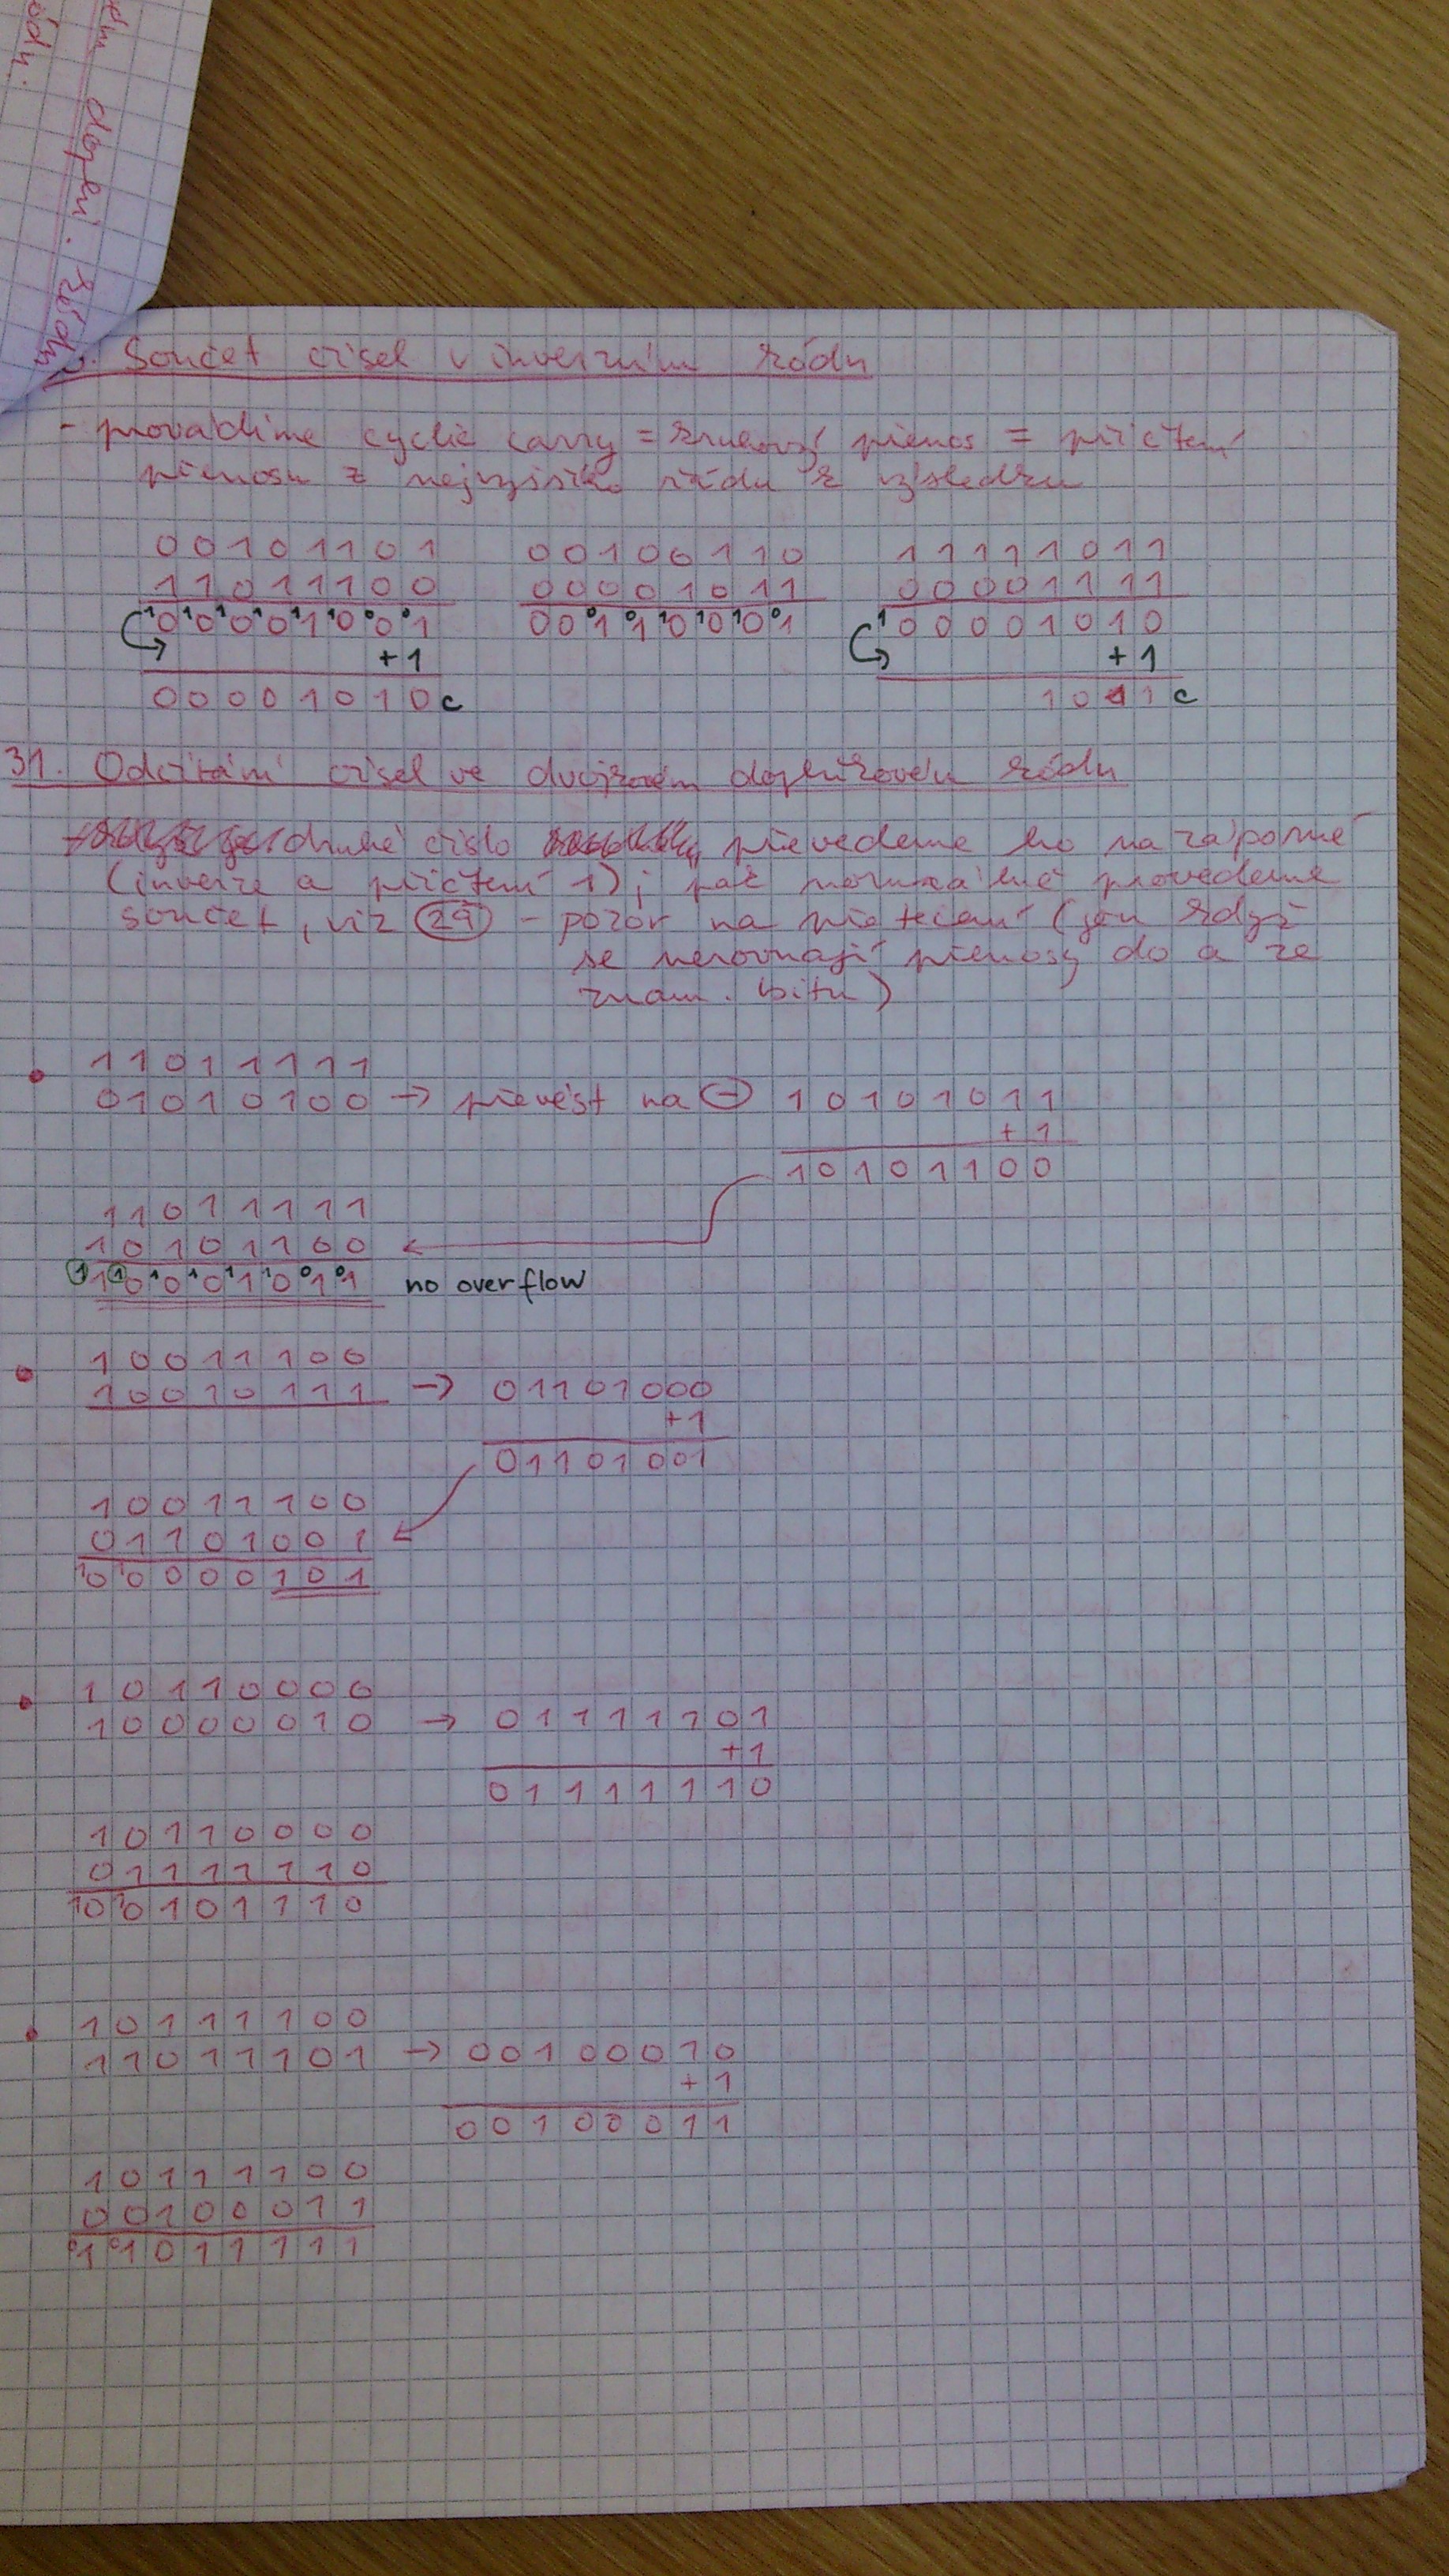 dopln. kódu
kódu.
Součet čísel v inverzním kódu
- provádíme cyclic carry = kruhový přenos = přičtení
přenosu z nejvyššího řádu k výsledku
00101101 00100110 11111011
11011100 00001011 00001111
1 0 1 0 1 0 1 0 1 1 1 0 0 0 0 1 0 0 0 1 0 1 1 0 1 0 1 0 0 1 1 00001010
+1 +1
00001010 c 1011 c
31. Odčítání čísel ve dvojkovém doplňkovém kódu
druhé číslo převedeme ho na záporné
(inverze a přičtení 1); pak provedeme
součet, viz 29 - pozor na přetečení (jen když
se nerovnají přenosy do a ze
znam. bitu)
• 11011111
01010100 → převést na ⊖ 10101011
+1
10101100
11011111
10101100
1 1 1 0 1 0 1 0 1 1 1 0 0 1 0 1 no overflow
• 10011100
10010111 → 01101000
+1
01101001
10011100
01101001
1 0 1 0 0 0 0 1 0 1
• 10110000
10000010 → 01111101
+1
01111110
10110000
01111110
1 0 1 0 1 0 1 1 1 0
• 10111100
11011101 → 00100010
+1
00100011
10111100
00100011
0 1 0 1 0 1 1 1 1 1